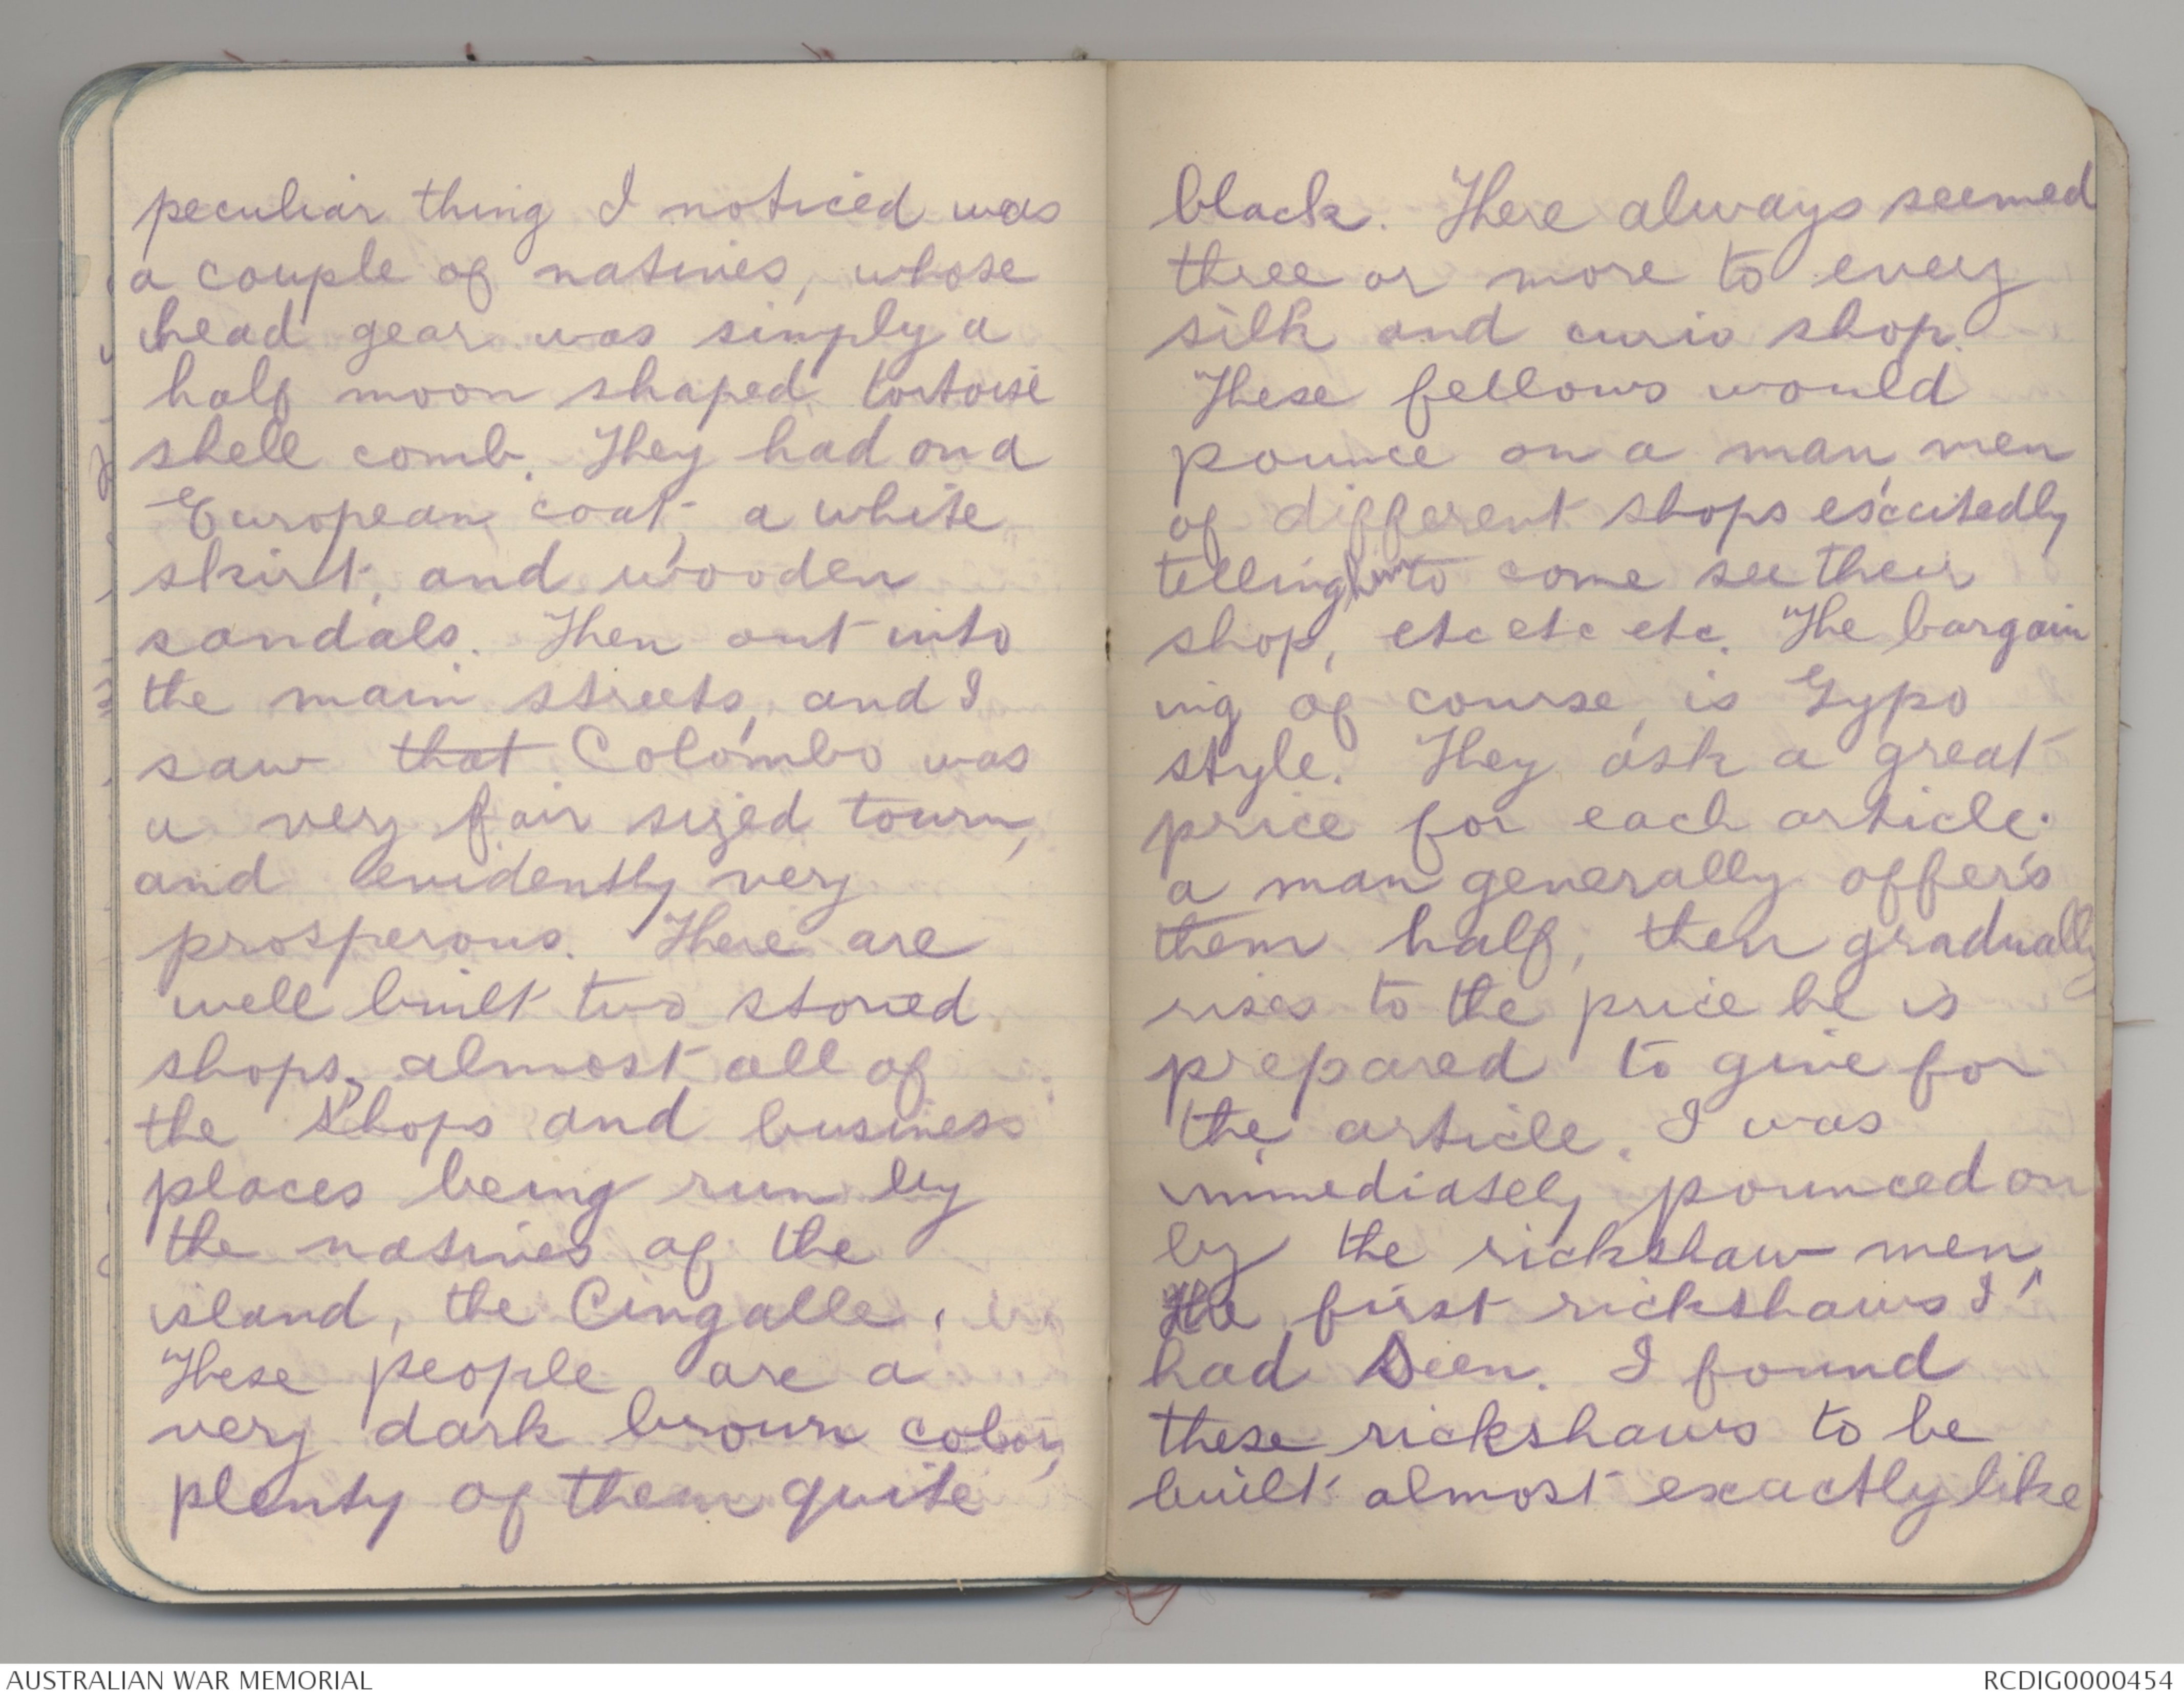 peculiar thing I noticed was
a couple of natives, whose
head gear was simply a
half moon shaped tortoise
shell comb. They had on a
European coat, a white
skirt, and wooden
sandals. Then out into
the main streets, and I
saw that Colombo was
a very fair sized town,
and evidently very
prosperous. There are
well built two storied
shops, almost all of
the shops and business
places being run by
the natives of the
island, the Cingalle.
These people are a
very dark brown color,
plenty of them quite
black. There always seemed
three or more to every
silk and curio shop.
These fellows would
pounce on a man, men
of different shops excitedly
telling him to come see their
shop, etc etc etc. The bargain
ing of course, is Gypo
style. They ask a great
price for each article.
a man generally offers
them half, then gradually
rises to the price he is
prepared to give for
the article. I was
immediately pounced on
by the rickshaw men,
the first rickshaws I
had seen. I found
these rickshaws to be
built almost exactly like
AUSTRALIAN WAR MEMORIAL
RCDIG0000454